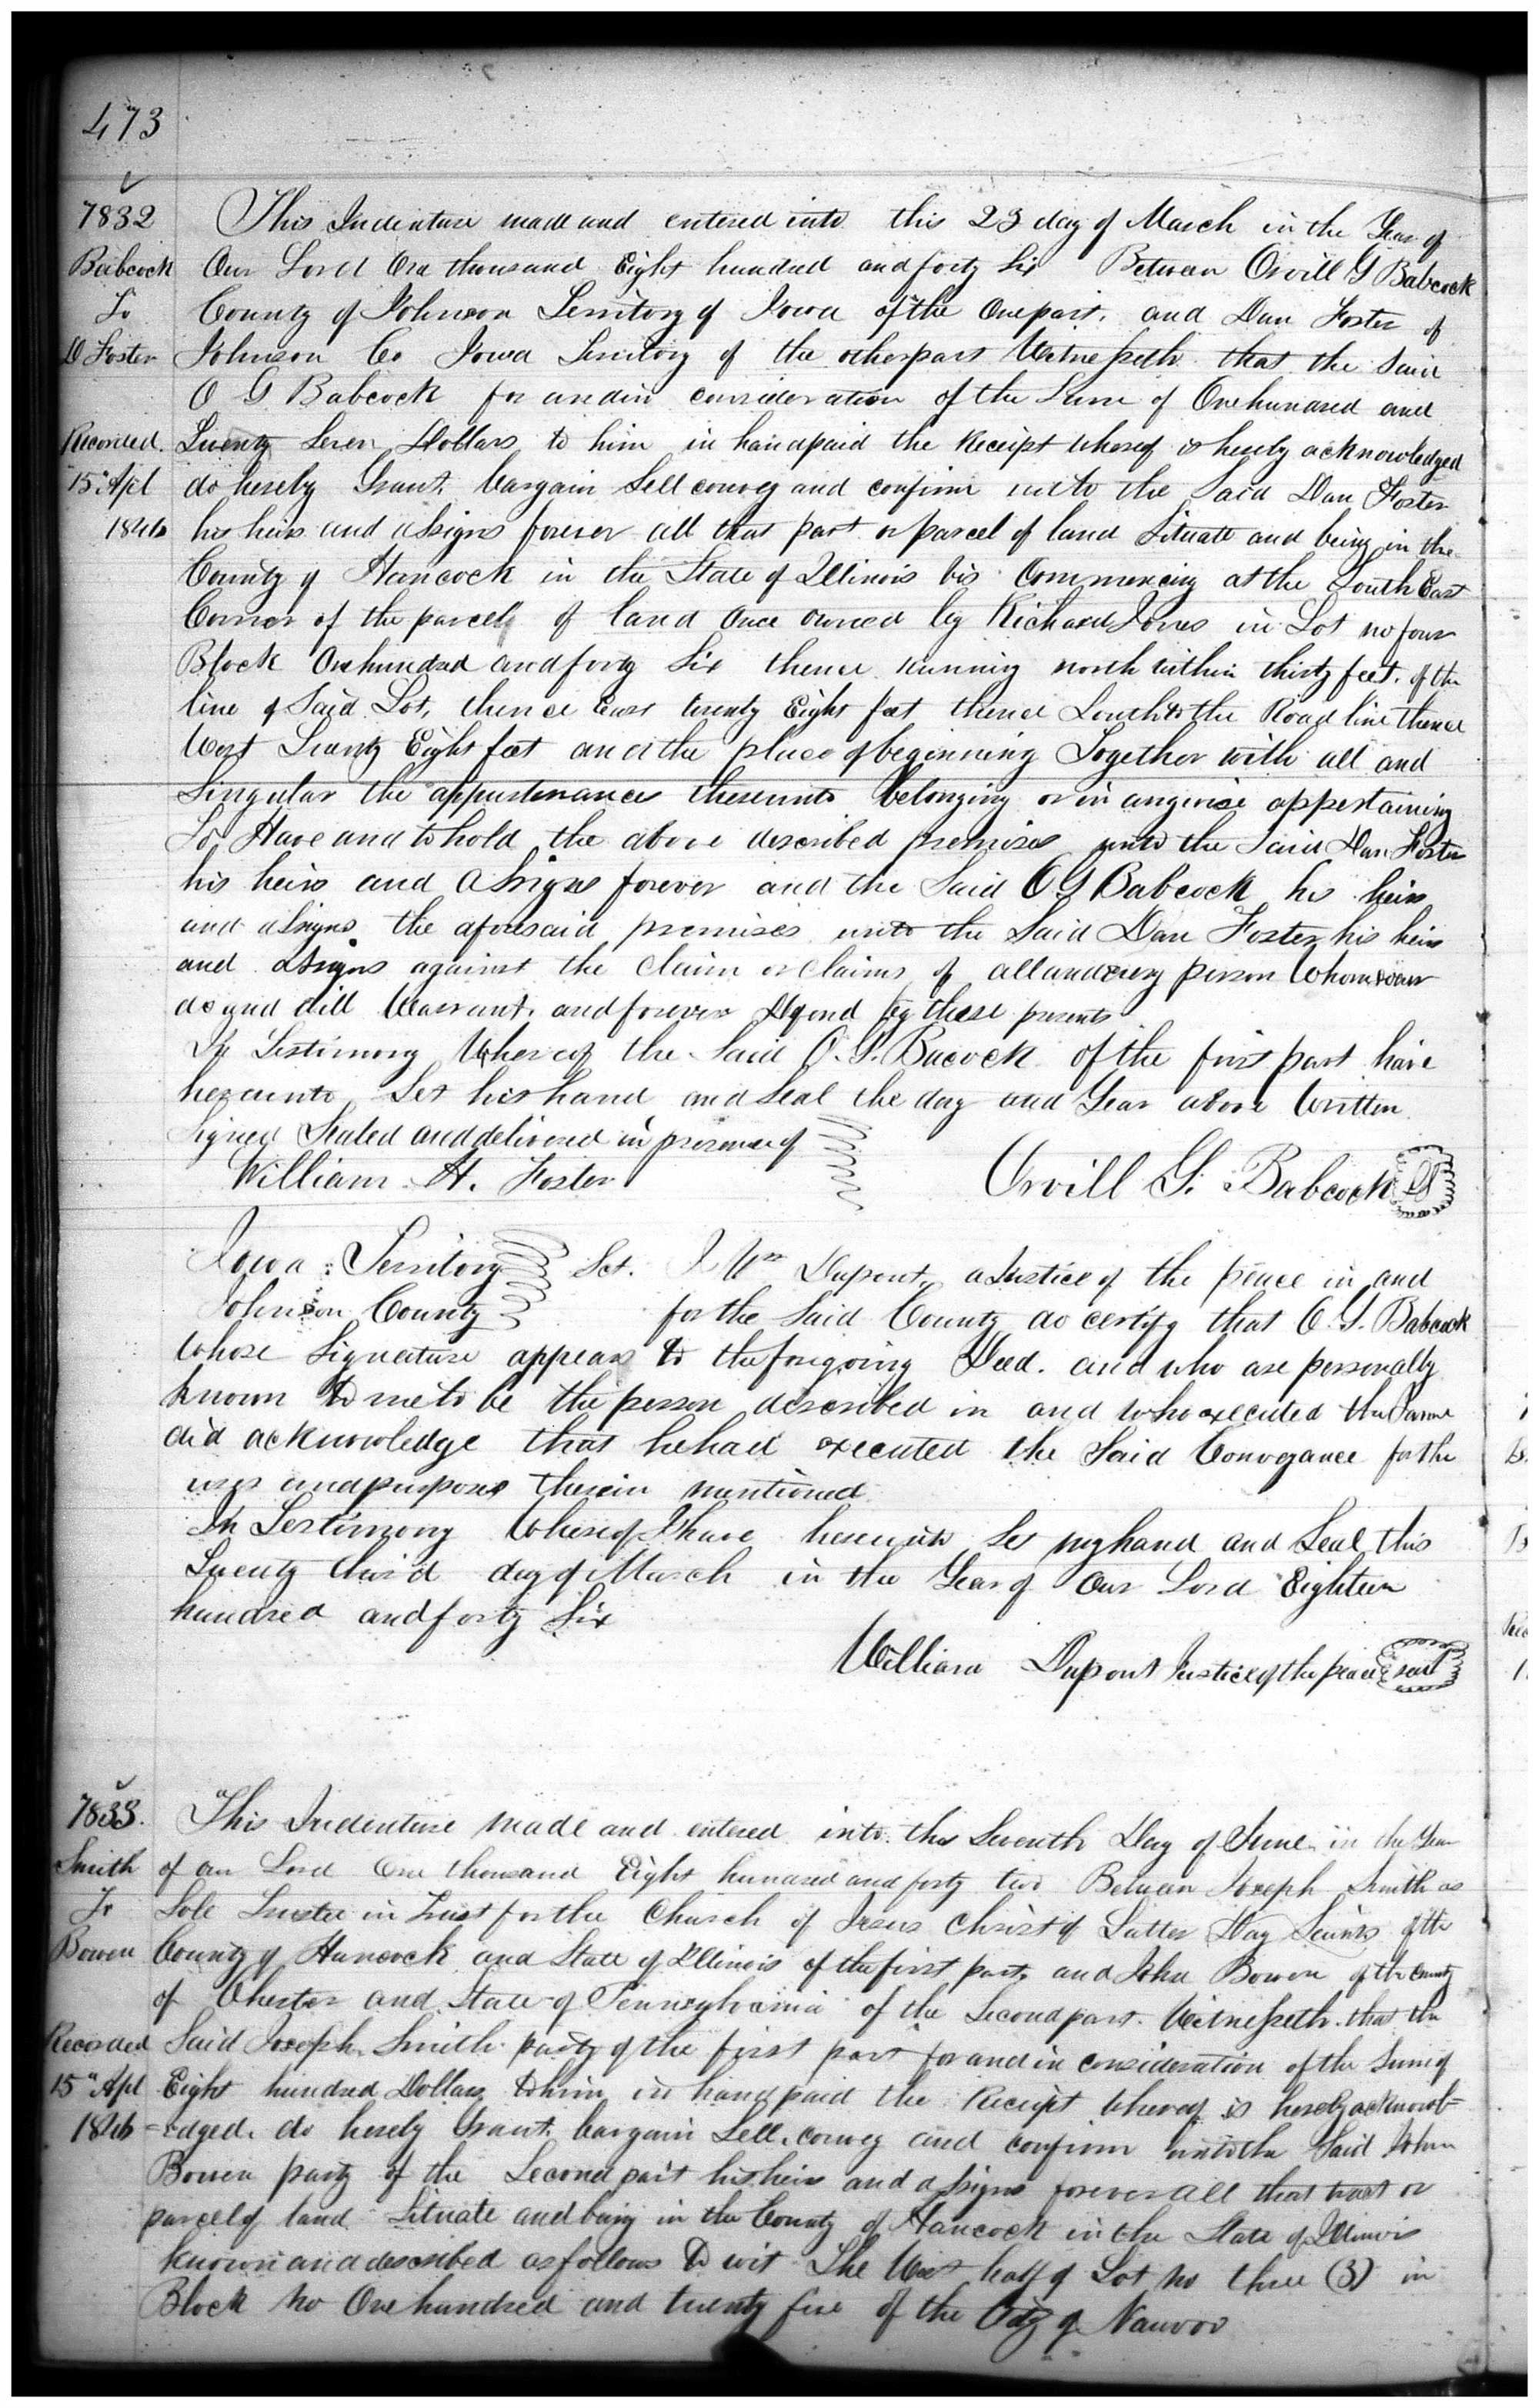 473
7832
Babcock
To
D Foster
Recorded
15" Apl
1846
This Indenture made and entered into this 23 day of March in the Year of
Our Lord One thousand Eight hundred and forty Six Between Orvill G Babcock
County of Johnson Territory of Iowa of the One part, and Dan Foster of
Johnson Co Iowa Territory of the other part Witnesseth that the Said
O G Babcock for and in consideration of the Sum of One hundred and
Twenty Seven Dollars to him in hand paid the Receipt whereof is hereby acknowledged
do hereby Grant, bargain Sell convey and confirm unto the Said Dan Foster
his heirs and assigns forever all that part or parcel of land Situate and being in the
County of Hancock in the State of Illinois vis Commencing at the South East
Corner of the parcell of land Once owned by Richard Jones in Lot no four
Block One hundred and forty Six thence running north within thirty feet, of the
line of Said Lot, thence East twenty Eight feet thence South to the Road line thence
West Twenty Eight feet and the place of beginning Together with all and
Singular the appurtenances thereunto belonging or in anywise appertaining
To Have and to hold the above described premises unto the Said Dan Foster
his heirs and assigns forever and the Said O G Babcock his heirs
and assigns the aforesaid premises unto the Said Dan Foster his heirs
and assigns against the claim or claims of all and every person Whomsoever
do and will Warrant, and forever Defend by these presents
In Testimony Whereof the Said O. G. Bacock of the first part have
hereunto Set his hand and Seal the day and Year above Written
Signed Sealed and delivered in presence of
William H. Foster
Orvill G. Babcock LS
Iowa Territory Sct. I Wm Dupont, a Justice of the peace in and
Johnson County for the Said County do certify that O. G. Babcock
whose Signature appears to the foregoing Deed. and who are personally
known to me to be the person described in and who executed the Same
did acknowledge that he had executed the Said Conveyance for the
uses and purposes therein mentioned
In Testimony Whereof I have hereunto Set my hand and Seal this
Twenty third day of March in the Year of Our Lord Eighteen
hundred and forty Six
William Dupont Justice of the peace seal
7833.
Smith
To
Bowen
Recorded
15" Apl
1846
This Indenture made and entered into this Seventh Day of June in the Year
of our Lord One thousand Eight hundred and forty two Between Joseph Smith as
Sole Trustee in Trust for the Church of Jesus Christ of Latter Day Saints of the
County of Hancock and State of Illinois of the first part, and John Bowen of the County
of Chester and State of Pennsylvania of the Second part. Witnesseth. that the
Said Joseph Smith party of the first part for and in consideration of the Sum of
Eight hundred Dollars to him in hand paid the Receipt whereof is hereby acknowl=
=edged. do hereby Grant, bargain Sell, convey and confirm unto the Said John
Bowen party of the Second part his heirs and assigns forever all that tract or
parcel of land Situate and being in the County of Hancock in the State of Illinois
known and described as follows to wit The West half of Lot No three (3) in
Block No One hundred and twenty five of the City of Nauvoo